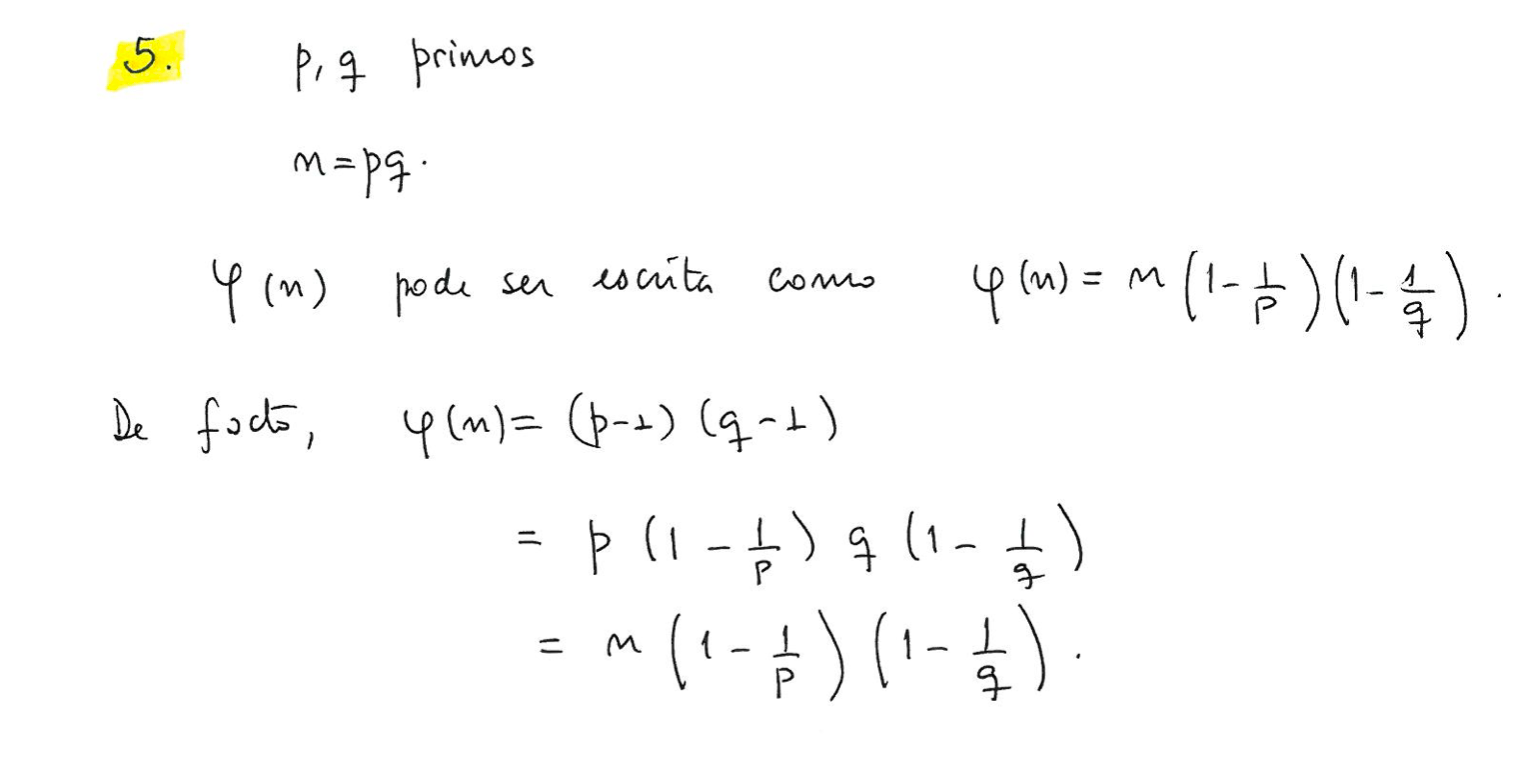 5. p, q primos
n = pq.
φ(n) pode ser escrita como φ(n) = n (1 - 1/p) (1 - 1/q).
De facto, φ(n) = (p-1) (q-1)
= p (1 - 1/p) q (1 - 1/q)
= n (1 - 1/p) (1 - 1/q).